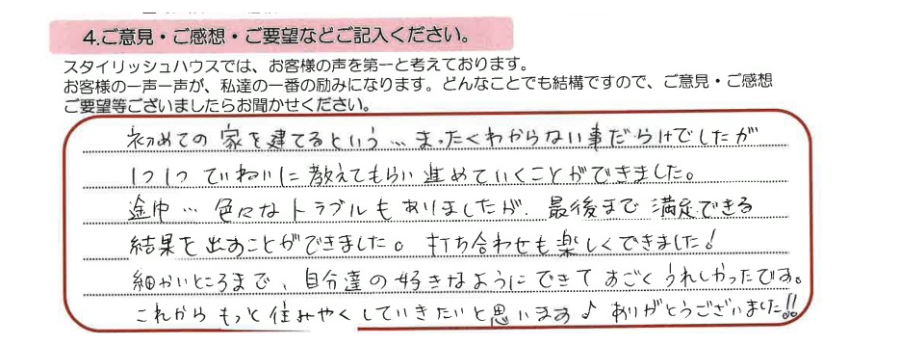 4.ご意見・ご感想・ご要望などご記入ください。
スタイリッシュハウスでは、お客様の声を第一と考えております。
お客様の一声一声が、私達の一番の励みになります。どんなことでも結構ですので、ご意見・ご感想
ご要望等ございましたらお聞かせください。
初めての家を建てるという…まったくわからない事だらけでしたが
1つ1つていねいに教えてもらい進めていくことができました。
途中…色々なトラブルもありましたが、最後まで満足できる
結果を出すことができました。打ち合わせも楽しくできました!
細かいところまで、自分達の好きなようにできてすごくうれしかったです。
これからもっと住みやくしていきたいと思います♪ありがとうございました!!